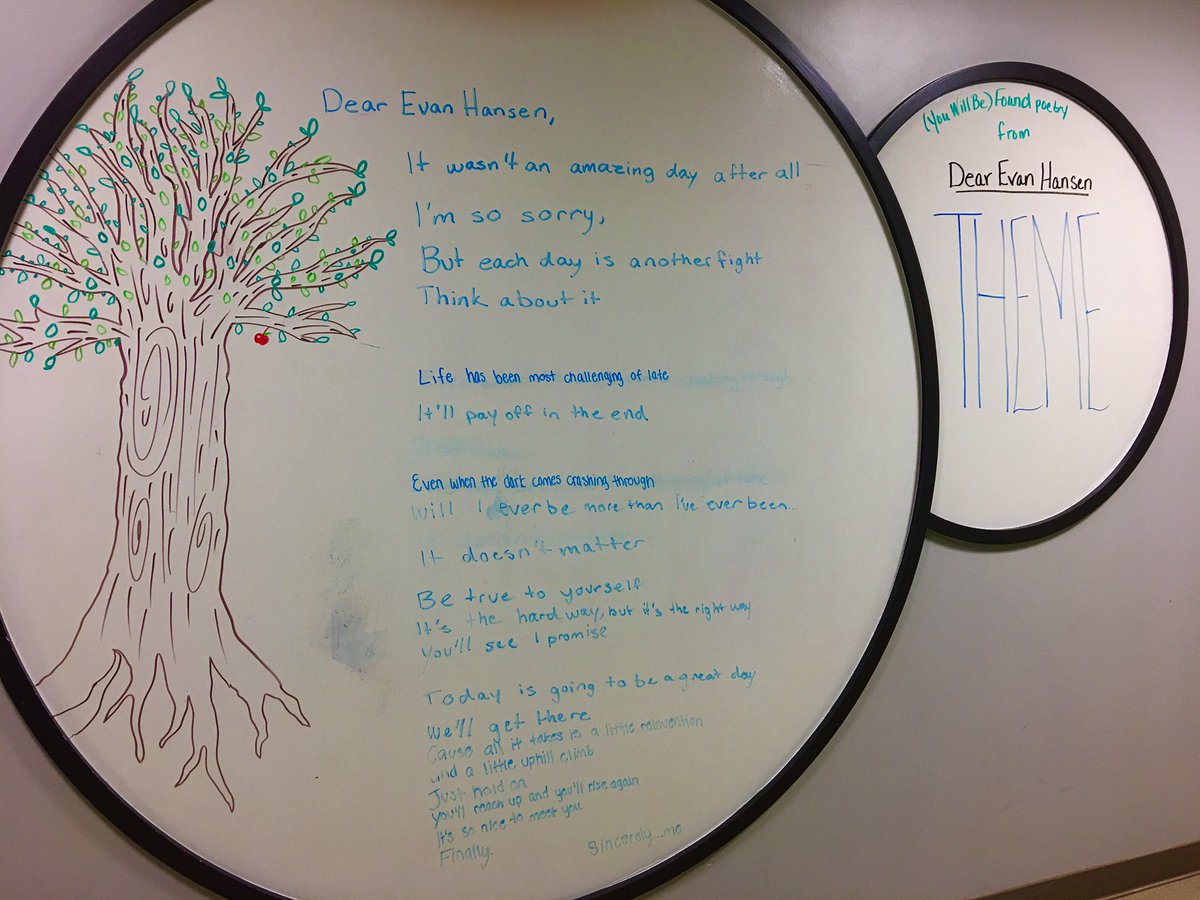 Dear Evan Hansen,
It wasn't an amazing day after all
I'm so sorry,
But each day is another fight
Think about it
Life has been most challenging of late
It'll pay off in the end
Even when the dark comes crashing through
Will I ever be more than I've ever been...
It doesn't matter
Be true to yourself
It's the hard way, but it's the right way
You'll see I promise
Today is going to be a great day
We'll get there
Cause all it takes is a little reinvention
and a little uphill climb
Just hold on
You'll reach up and you'll rise again
It's so nice to meet you.
Finally.
Sincerely...me
(You Will Be) Found poetry
from
Dear Evan Hansen
THEME